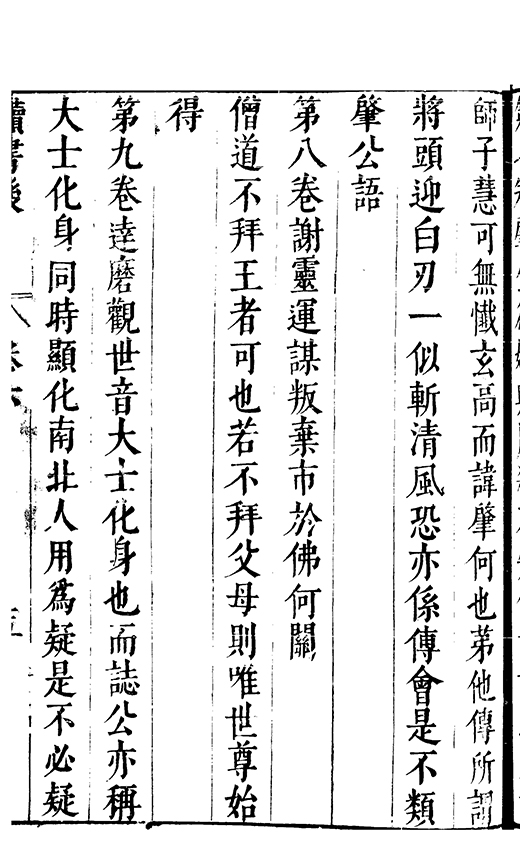 師子慧可無懺玄高而諱肇何也苐他傳所謂
將頭迎白刃一似斬清風恐亦係傳會是不類
肇公語
第八卷謝靈運謀叛棄市於佛何關
僧道不拜王者可也若不拜父母則唯世尊始
得
第九卷達磨觀世音大士化身也而誌公亦稱
大士化身同時顯化南北人用爲疑是不必疑
讀書後
卷六
五